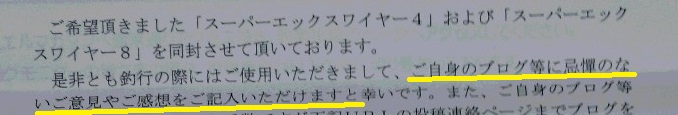 ご希望頂きました「スーパーエックスワイヤー４」および「スーパーエック
スワイヤー８」を同封させて頂いております。
是非とも釣行の際にはご使用いただきまして、ご自身のブログ等に忌憚のな
いご意見やご感想をご記入いただけますと幸いです。また、ご自身のブログ等
下記ＵＲＬの投稿連絡ページまでブログを